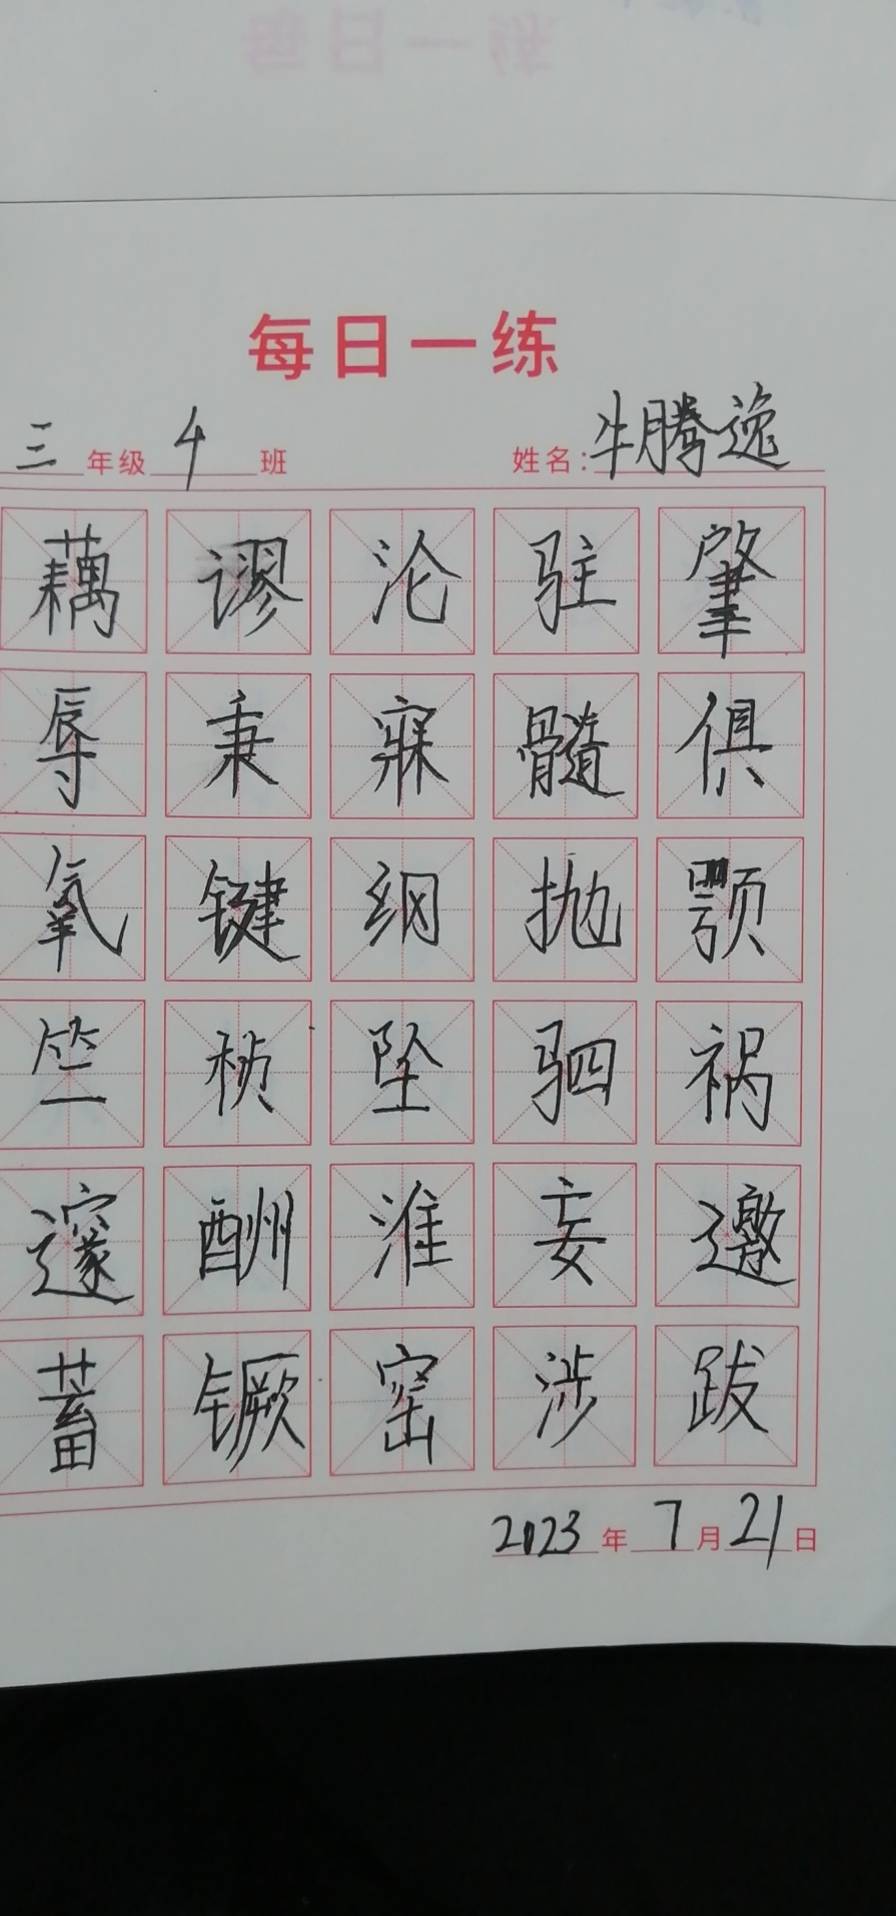 每日一练
三年级 4 班 姓名:牛腾逸
藕 谬 沦 驻 肇
辱 秉 寐 髓 俱
氧 键 纲 抛 颚
竺 桢 坠 驷 祸
邃 酬 淮 妄 邀
蓄 镢 窑 涉 跋
2023年7月21日